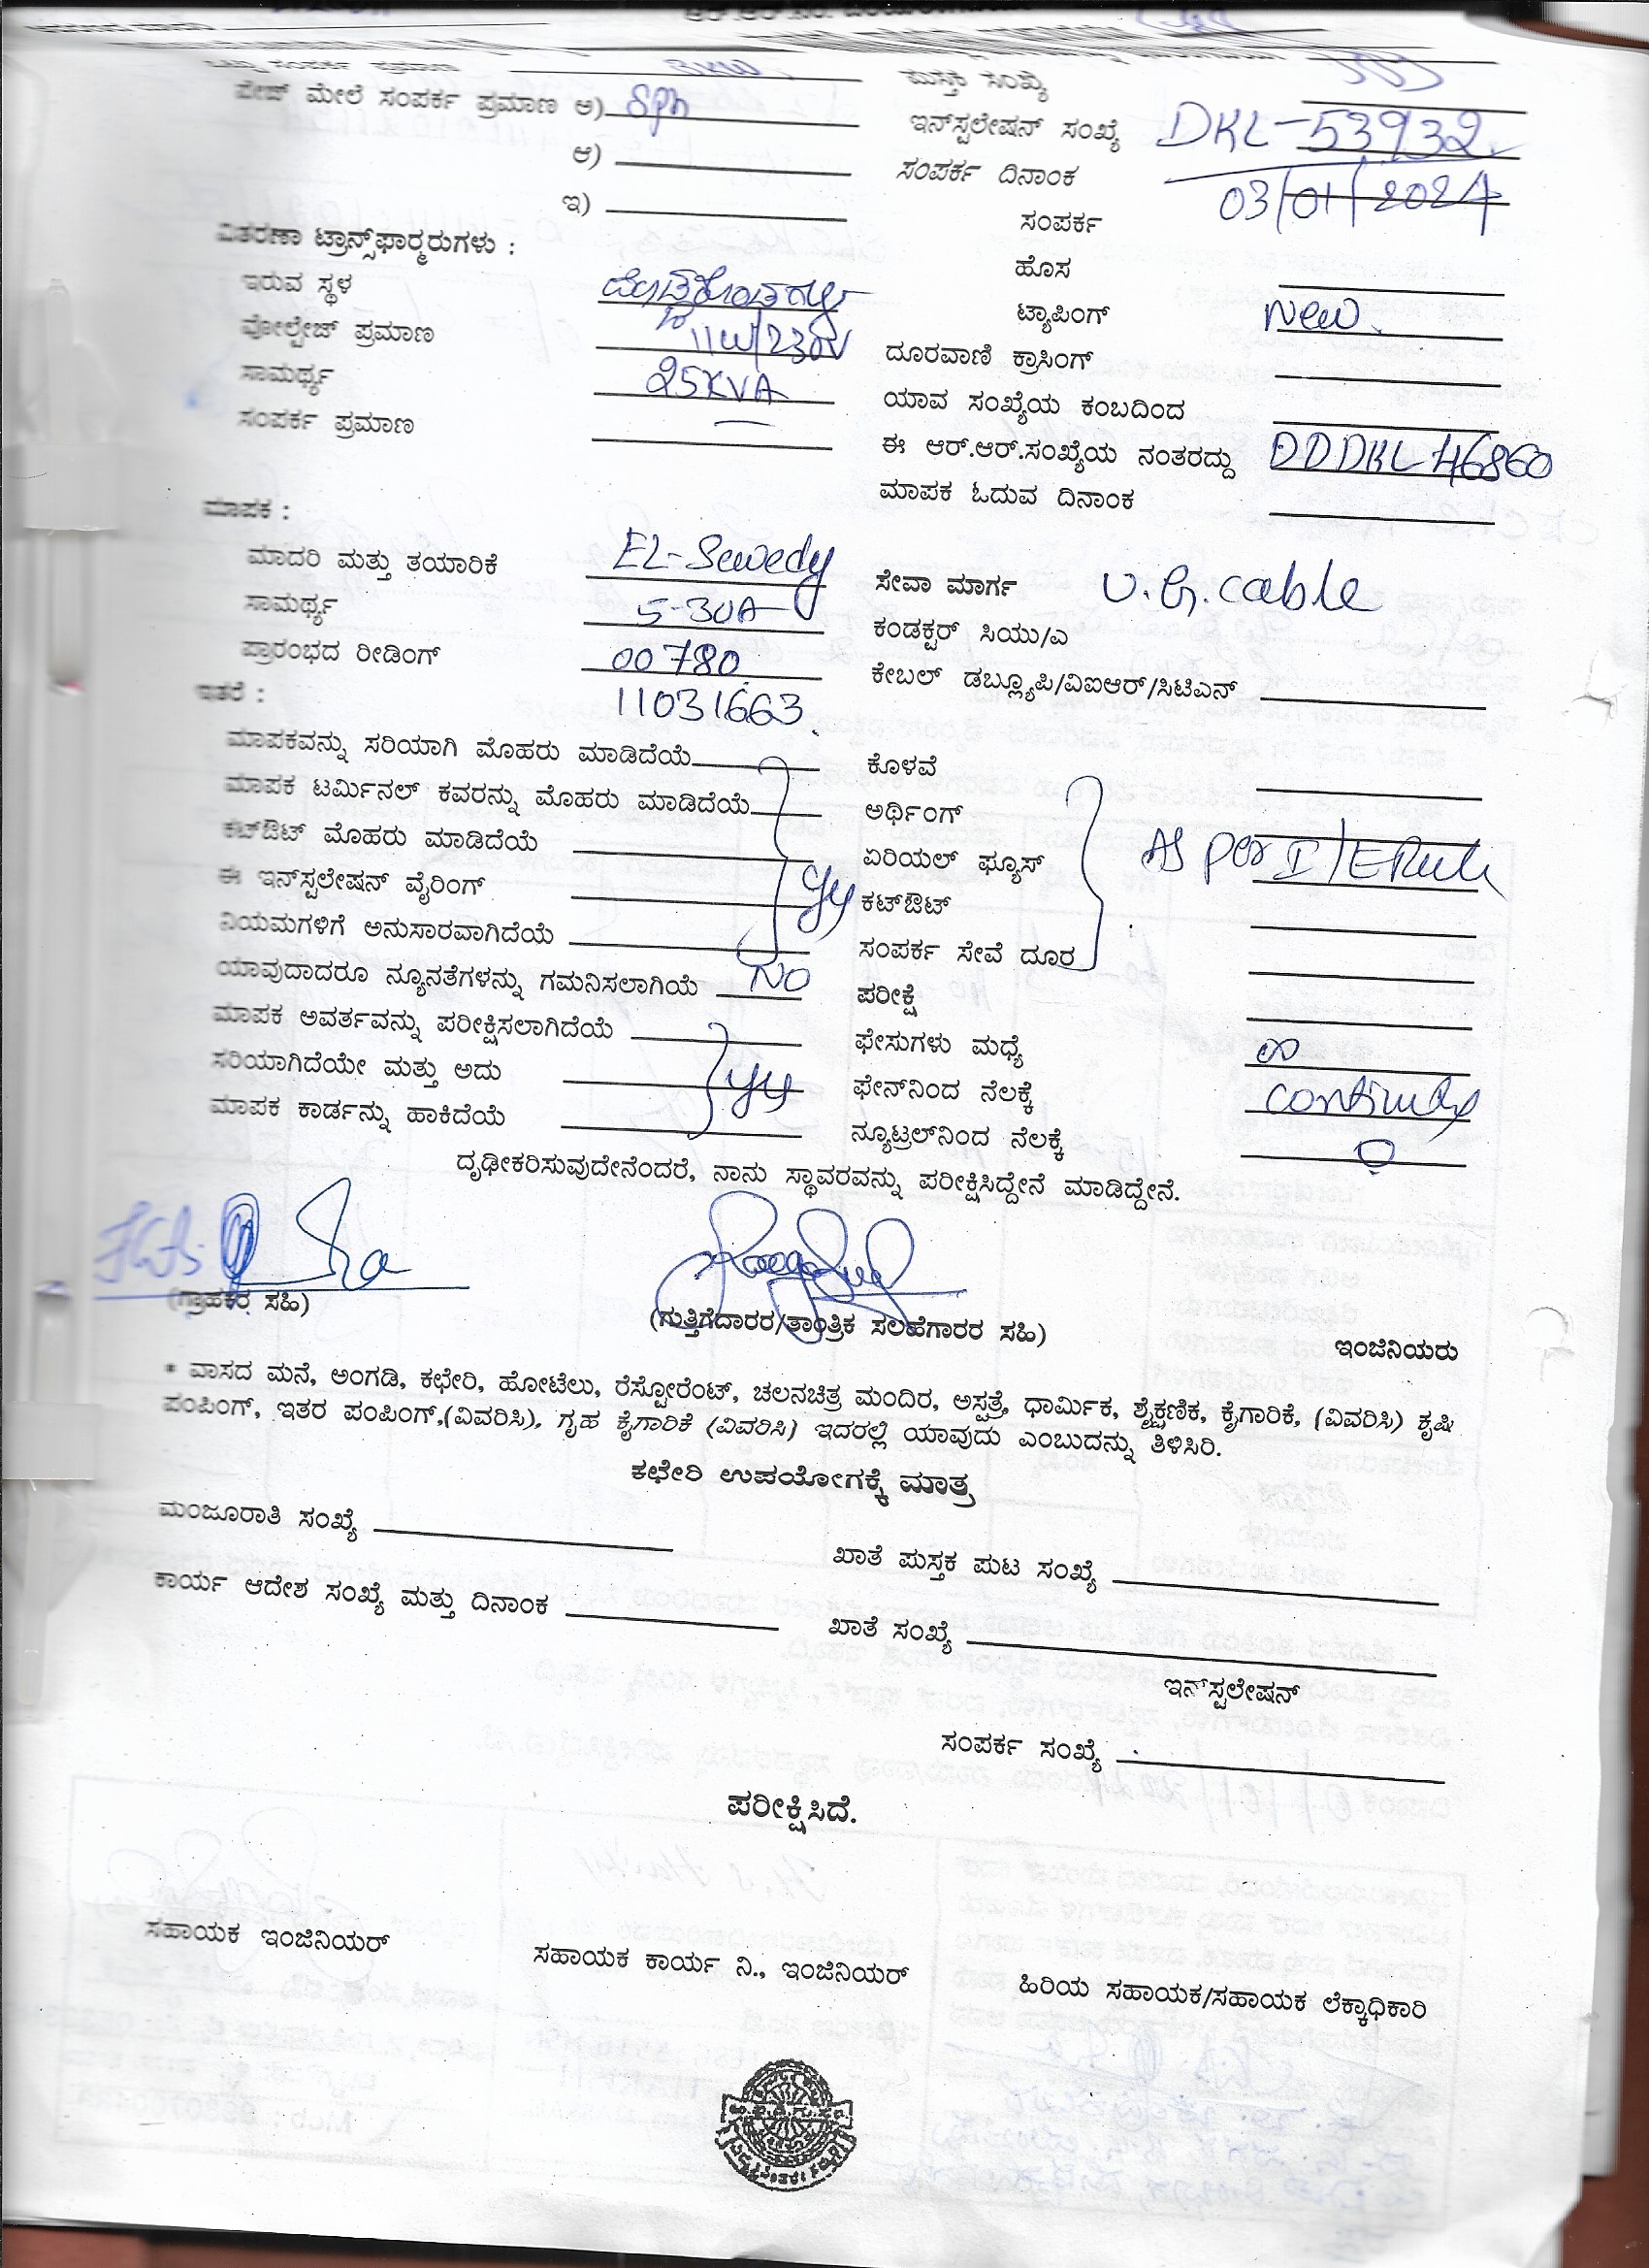 ಆರ್.ಆರ್.ನಂ.
ಒಟ್ಟು ಸಂಪರ್ಕ ಪ್ರಮಾಣ 3KW. ಪುಸ್ತಕ ಸಂಖ್ಯೆ
ಪೇಜ್ ಮೇಲೆ ಸಂಪರ್ಕ ಪ್ರಮಾಣ ಅ) Sph ಇನ್‌ಸ್ಟಲೇಷನ್ ಸಂಖ್ಯೆ DKL-53932
ಆ) ಸಂಪರ್ಕ ದಿನಾಂಕ 03/01/2024
ಇ) ಸಂಪರ್ಕ
ವಿತರಣಾ ಟ್ರಾನ್ಸ್‌ಫಾರ್‍ಮರುಗಳು : ಹೊಸ
ಇರುವ ಸ್ಥಳ ಟ್ಯಾಪಿಂಗ್ New.
ವೋಲ್ಟೇಜ್ ಪ್ರಮಾಣ 11W/230V ದೂರವಾಣಿ ಕ್ರಾಸಿಂಗ್
ಸಾಮರ್ಥ್ಯ 25KVA ಯಾವ ಸಂಖ್ಯೆಯ ಕಂಬದಿಂದ
ಸಂಪರ್ಕ ಪ್ರಮಾಣ — ಈ ಆರ್.ಆರ್.ಸಂಖ್ಯೆಯ ನಂತರದ್ದು DDDKL 46860
ಮಾಪಕ ಓದುವ ದಿನಾಂಕ
ಮಾಪಕ :
ಮಾದರಿ ಮತ್ತು ತಯಾರಿಕೆ EL-Sewedy ಸೇವಾ ಮಾರ್ಗ U.G.cable
ಸಾಮರ್ಥ್ಯ 5-30A ಕಂಡಕ್ಟರ್ ಸಿಯು/ಎ
ಪ್ರಾರಂಭದ ರೀಡಿಂಗ್ 00780 ಕೇಬಲ್ ಡಬ್ಲ್ಯೂಪಿ/ವಿಐಆರ್/ಸಿಟಿಎನ್
ಇತರೆ : 11031663
ಮಾಪಕವನ್ನು ಸರಿಯಾಗಿ ಮೊಹರು ಮಾಡಿದೆಯೆ ಕೊಳವೆ
ಮಾಪಕ ಟರ್ಮಿನಲ್ ಕವರನ್ನು ಮೊಹರು ಮಾಡಿದೆಯೆ ಅರ್ಥಿಂಗ್
ಕಟ್‌ಔಟ್ ಮೊಹರು ಮಾಡಿದೆಯೆ ಏರಿಯಲ್ ಫ್ಯೂಸ್ As per I/E Rule
ಈ ಇನ್‌ಸ್ಟಲೇಷನ್ ವೈರಿಂಗ್ yy ಕಟ್‌ಔಟ್
ನಿಯಮಗಳಿಗೆ ಅನುಸಾರವಾಗಿದೆಯೆ ಸಂಪರ್ಕ ಸೇವೆ ದೂರ
ಯಾವುದಾದರೂ ನ್ಯೂನತೆಗಳನ್ನು ಗಮನಿಸಲಾಗಿಯೆ No ಪರೀಕ್ಷೆ
ಮಾಪಕ ಅವರ್ತವನ್ನು ಪರೀಕ್ಷಿಸಲಾಗಿದೆಯೆ ಫೇಸುಗಳು ಮಧ್ಯೆ ∞
ಸರಿಯಾಗಿದೆಯೇ ಮತ್ತು ಅದು yy ಫೇನ್‌ನಿಂದ ನೆಲಕ್ಕೆ continuty
ಮಾಪಕ ಕಾರ್ಡನ್ನು ಹಾಕಿದೆಯೆ ನ್ಯೂಟ್ರಲ್‌ನಿಂದ ನೆಲಕ್ಕೆ 0
ದೃಢೀಕರಿಸುವುದೇನೆಂದರೆ, ನಾನು ಸ್ಥಾವರವನ್ನು ಪರೀಕ್ಷಿಸಿದ್ದೇನೆ ಮಾಡಿದ್ದೇನೆ.
(ಗ್ರಾಹಕರ ಸಹಿ) (ಗುತ್ತಿಗೆದಾರರ/ತಾಂತ್ರಿಕ ಸಲಹೆಗಾರರ ಸಹಿ) ಇಂಜಿನಿಯರು
* ವಾಸದ ಮನೆ, ಅಂಗಡಿ, ಕಛೇರಿ, ಹೋಟೆಲು, ರೆಸ್ಟೋರೆಂಟ್, ಚಲನಚಿತ್ರ ಮಂದಿರ, ಅಸ್ಪತ್ರೆ, ಧಾರ್ಮಿಕ, ಶೈಕ್ಷಣಿಕ, ಕೈಗಾರಿಕೆ, (ವಿವರಿಸಿ) ಕೃಷಿ
ಪಂಪಿಂಗ್, ಇತರ ಪಂಪಿಂಗ್,(ವಿವರಿಸಿ), ಗೃಹ ಕೈಗಾರಿಕೆ (ವಿವರಿಸಿ) ಇದರಲ್ಲಿ ಯಾವುದು ಎಂಬುದನ್ನು ತಿಳಿಸಿರಿ.
ಕಛೇರಿ ಉಪಯೋಗಕ್ಕೆ ಮಾತ್ರ
ಮಂಜೂರಾತಿ ಸಂಖ್ಯೆ ಖಾತೆ ಪುಸ್ತಕ ಪುಟ ಸಂಖ್ಯೆ
ಕಾರ್ಯ ಆದೇಶ ಸಂಖ್ಯೆ ಮತ್ತು ದಿನಾಂಕ ಖಾತೆ ಸಂಖ್ಯೆ
ಇನ್‌ಸ್ಟಲೇಷನ್
ಸಂಪರ್ಕ ಸಂಖ್ಯೆ
ಪರೀಕ್ಷಿಸಿದೆ.
ಸಹಾಯಕ ಇಂಜಿನಿಯರ್ ಸಹಾಯಕ ಕಾರ್ಯ ನಿ., ಇಂಜಿನಿಯರ್ ಹಿರಿಯ ಸಹಾಯಕ/ಸಹಾಯಕ ಲೆಕ್ಕಾಧಿಕಾರಿ